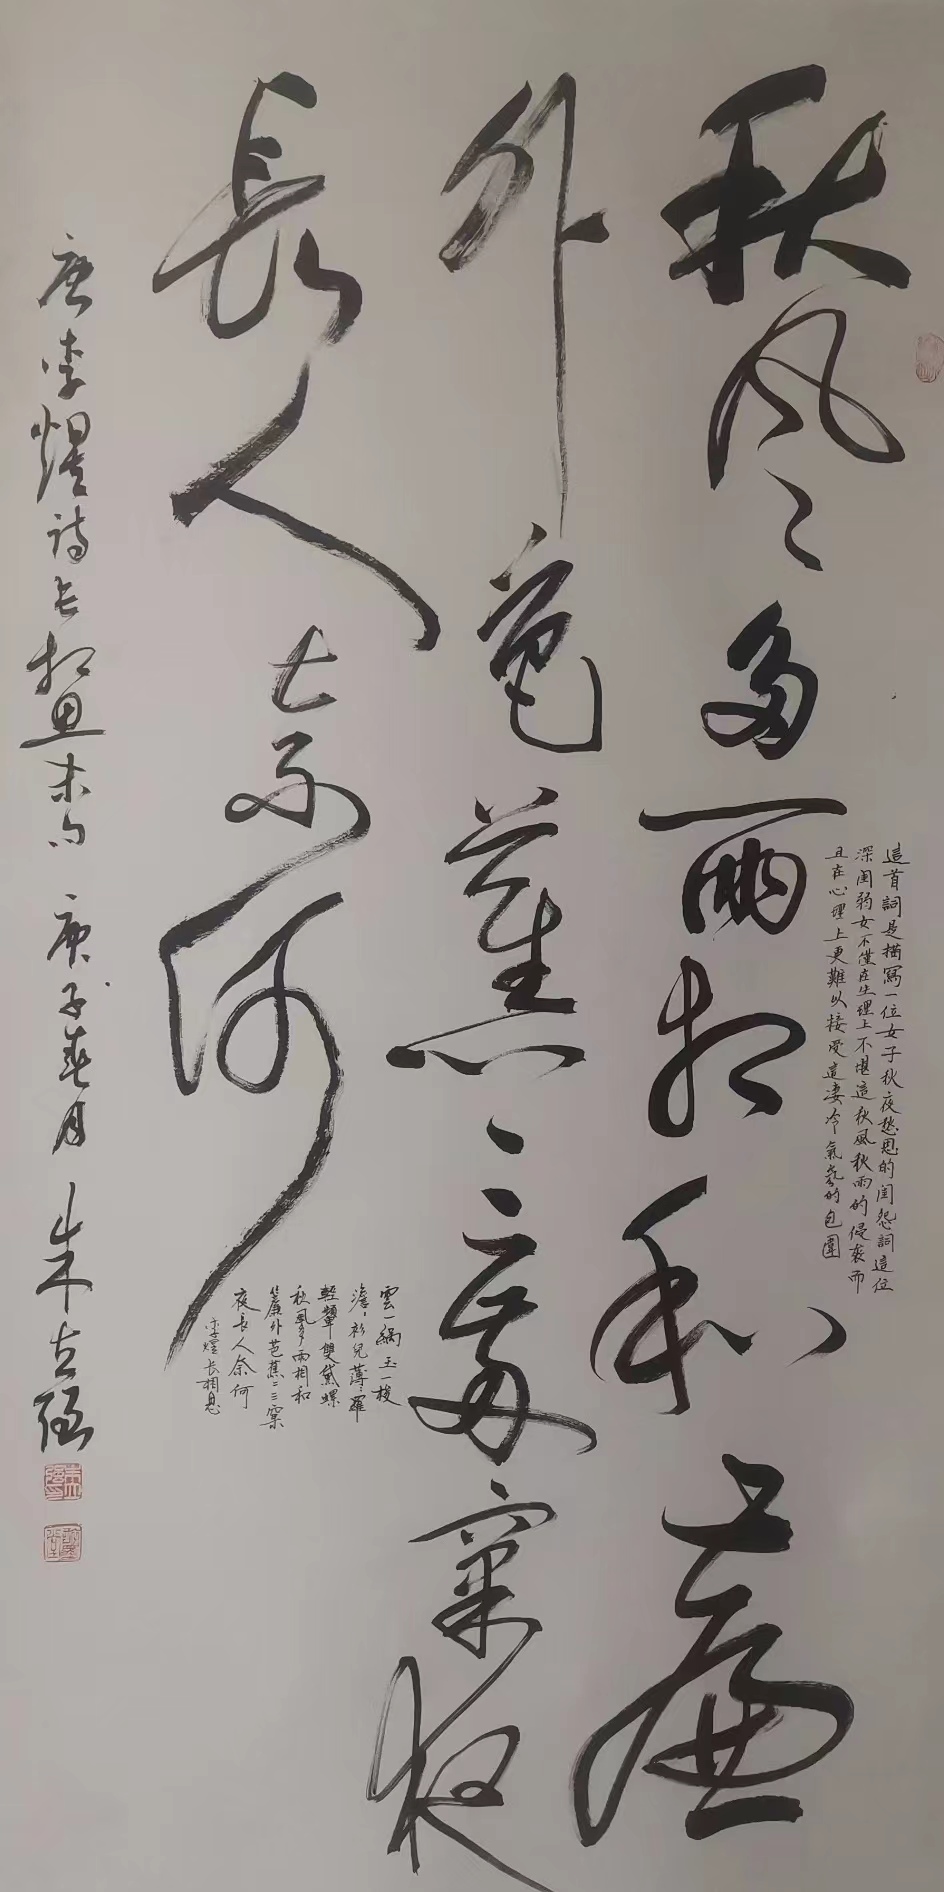 秋風多雨相和簾
外芭蕉三兩窠夜
長人奈何
這首詞是描寫一位女子秋夜愁思的閨怨詞這位
深閨弱女不僅在生理上不堪這秋風秋雨的侵袭而
且在心理上更難以接受這凄冷氣氛的包圍
雲一緺玉一梭
澹澹衫兒薄薄羅
輕顰雙黛螺
秋風多雨相和
簾外芭蕉二三窠
夜長人奈何
李煜長相思
唐李煜詩長相思末句 庚子春月 朱立强